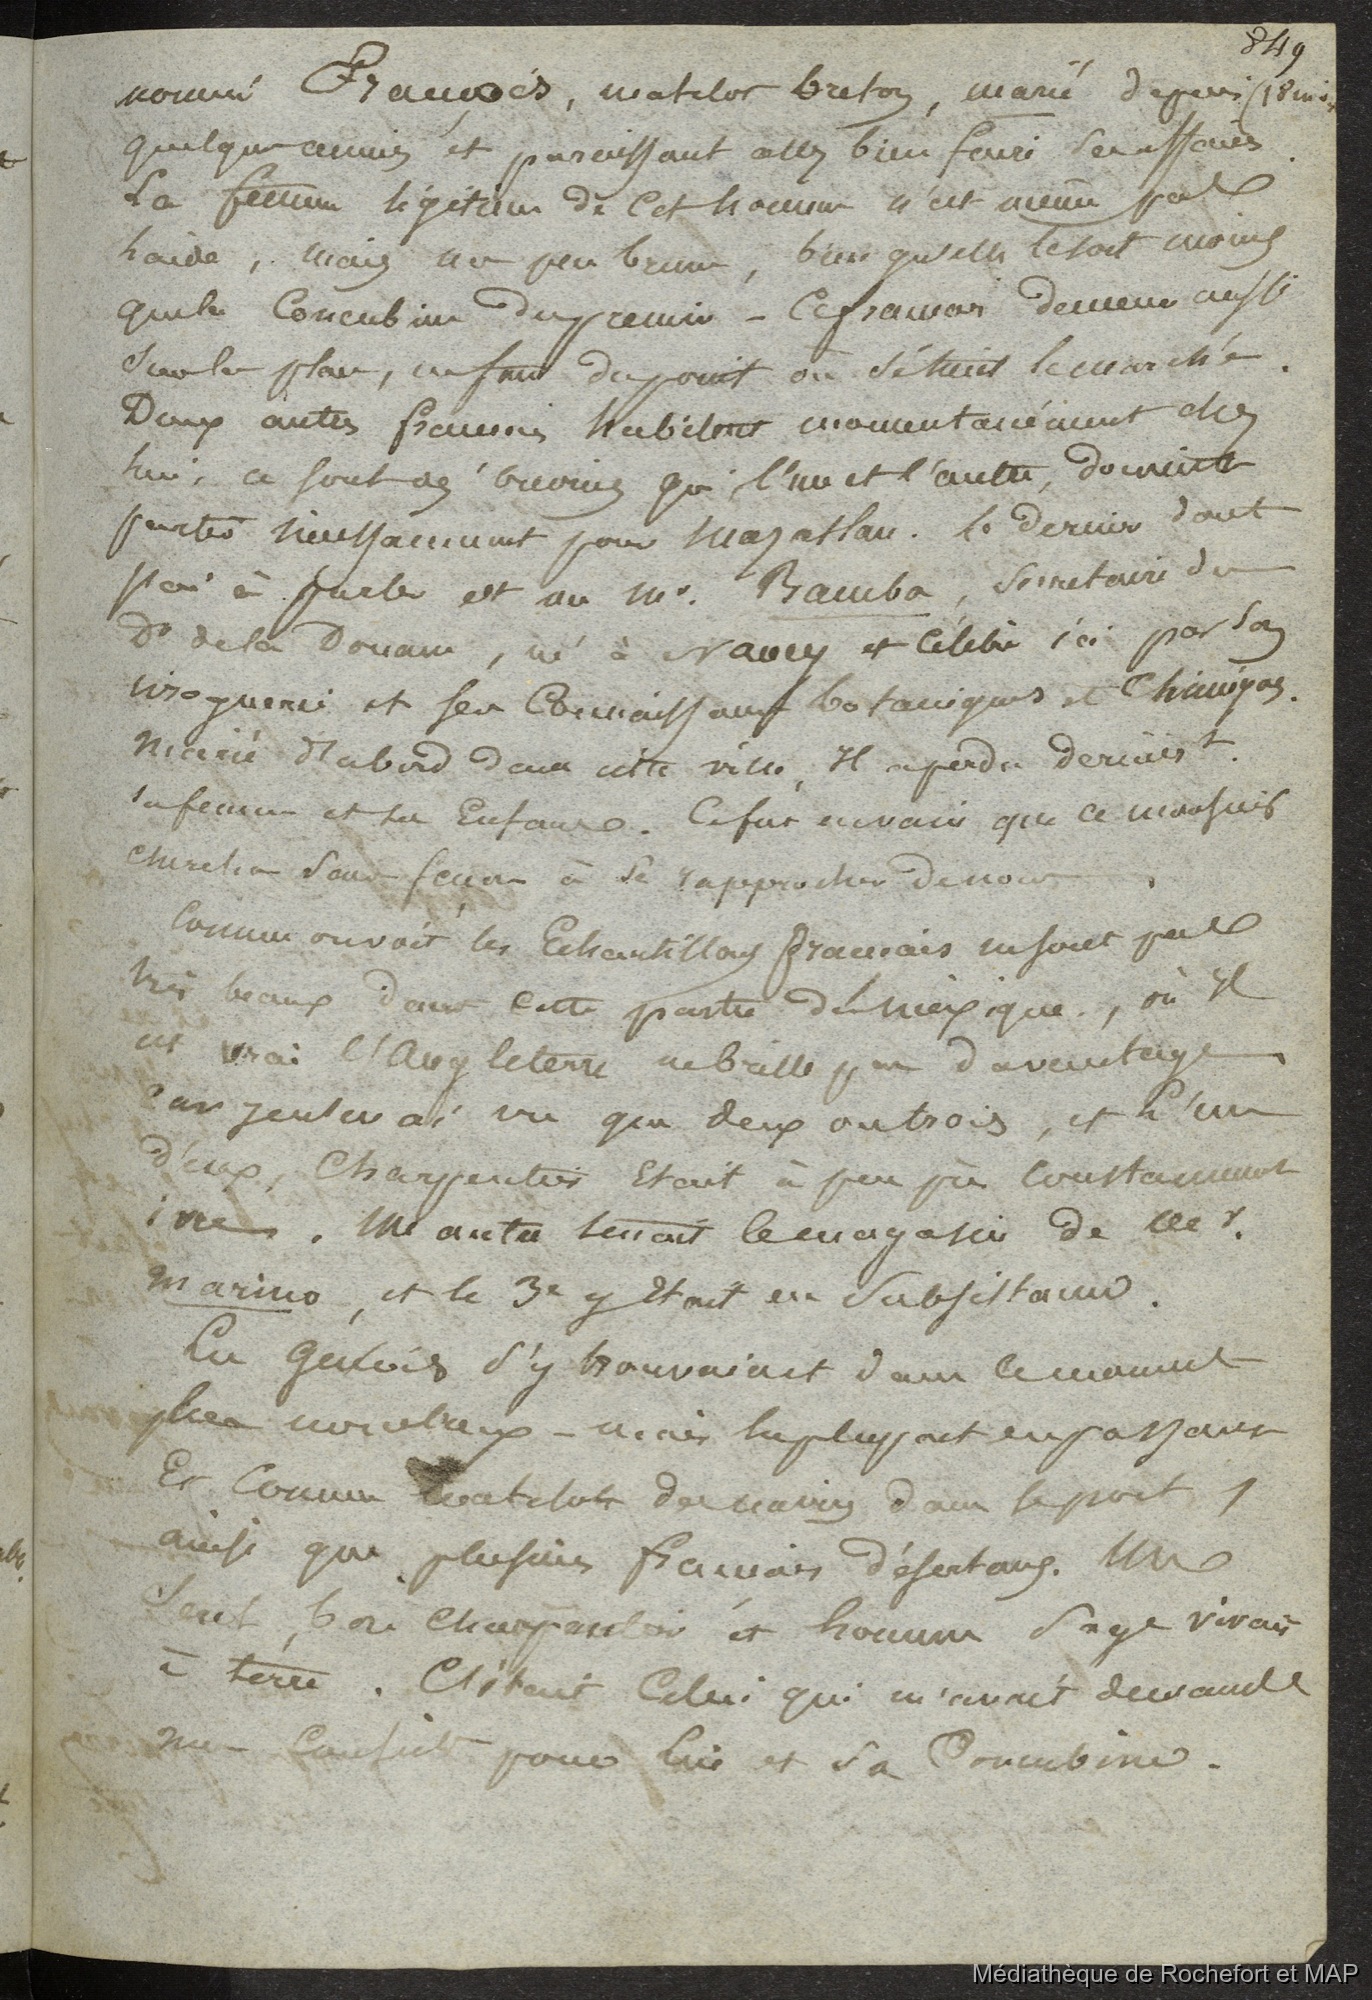 849
nommé François, matelot breton, marié depuis (18 mois
quelques années et paraissant assez bien faire ses affaires.
La femme légitime de cet homme n'est même pas
laide, mais un peu brune, bien qu'elle le soit moins
que la Concubine du premier - Ce français demeure aussi
sur la place, en face du point où se tient le marché.
Deux autres français habitent momentanément chez
lui, ce sont des qui l'un et l'autre, doivent
partir incessamment pour Mazatlan. le dernier dont
j'ai à parler est un Mr. Bamba, secretaire du
Dr de la Douane, né à Nancy et célèbre ici par son
ivrognerie et ses Connaissances botaniques et Chimiques.
Marié d'abord dans cette ville, Il a perdu dernièrt.
sa femme et ses Enfans. Ce fut en vain que ce monsieur
chercha à se rapprocher de nous.
Comme on voit les Echantillons français ne sont pas
très beaux dans cette partie du Mexique, où Il
est vrai l'Angleterre ne brille pas davantage,
car je n'en ai vu que deux ou trois, et l'un
d'eux, Charpentier Etait à peu près constamment
ivre. Un autre tenait le magasin de Mr.
Marino, et le 3e y Etait en subsistance.
Les s'y trouvaient dans le moment
plus nombreux - mais la plupart en passant
Et Comme matelots des navires dans le port,
ainsi que plusieurs français déserteurs. Un
seul, bon charpentier et homme sage vivait
à terre. C'était Celui qui m'avait demandé
une pour lui et sa Concubine.
Médiathèque de Rochefort et MAP